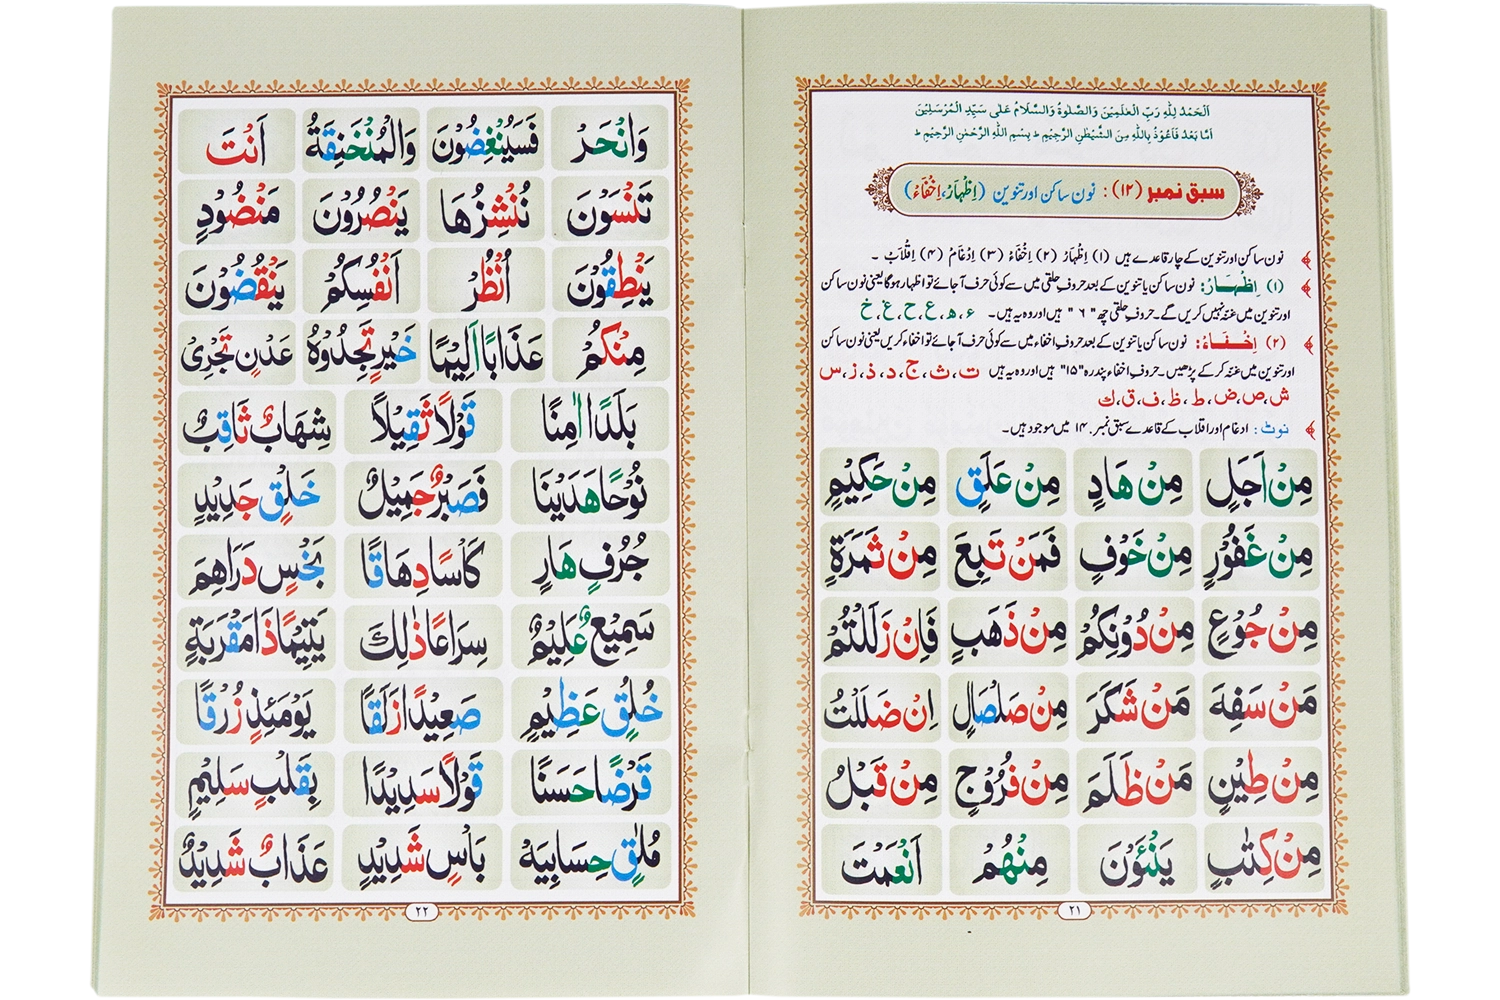 اَلْحَمْدُ لِلّٰهِ رَبِّ الْعٰلَمِيْنَ وَالصَّلٰوةُ وَالسَّلَامُ عَلٰى سَيِّدِ الْمُرْسَلِيْنَ
اَمَّا بَعْدُ فَاَعُوْذُ بِاللّٰهِ مِنَ الشَّيْطٰنِ الرَّجِيْمِ ط بِسْمِ اللّٰهِ الرَّحْمٰنِ الرَّحِيْمِ ط
سبق نمبر (۱۲): نون ساکن اور تنوین (اِظْهَارْ، اِخْفَاءْ)
نون ساکن اور تنوین کے چار قاعدے ہیں (۱) اِظْهَارْ (۲) اِخْفَاءْ (۳) اِدْغَامْ (۴) اِقْلَابْ ۔
(۱) اِظْهَارْ: نون ساکن یا تنوین کے بعد حروفِ حلقی میں سے کوئی حرف آجائے تو اظہار ہوگا یعنی نون ساکن
اور تنوین میں غنّہ نہیں کریں گے۔ حروفِ حلقی چھ "۶" ہیں اور وہ یہ ہیں۔ ء، ھ، ع، ح، غ، خ
(۲) اِخْفَاءْ: نون ساکن یا تنوین کے بعد حروفِ اخفاء میں سے کوئی حرف آجائے تو اخفاء کریں یعنی نون ساکن
اور تنوین میں غنّہ کرکے پڑھیں۔ حروفِ اخفاء پندرہ "۱۵" ہیں اور وہ یہ ہیں ت، ث، ج، د، ذ، ز، س
ش، ص، ض، ط، ظ، ف، ق، ك
نوٹ: ادغام اور اقلاب کے قاعدے سبق نمبر ۱۴ میں موجود ہیں۔
مِنْ اَجَلٍ مِنْ هَادٍ مِنْ عَلَقٍ مِنْ حَكِيْمٍ
مِنْ غَفُوْرٍ مِنْ خَوْفٍ فَمَنْ تَبِعَ مِنْ ثَمَرَةٍ
مِنْ جُوْعٍ مِنْ دُوْنِكُمْ مِنْ ذَهَبٍ فَاِنْ زَلَلْتُمْ
مَنْ سَفِهَ مَنْ شَكَرَ مِنْ صَلْصَالٍ اِنْ ضَلَلْتُ
مِنْ طِيْنٍ مَنْ ظَلَمَ مِنْ فُرُوْجٍ مِنْ قَبْلُ
مِنْ كِتٰبٍ يَنْئَوْنَ مِنْهُمْ اَنْعَمْتَ
۲۱
وَانْحَرْ فَسَيُنْغِضُوْنَ وَالْمُنْخَنِقَةُ اَنْتَ
تَنْسَوْنَ نُنْشِزُهَا يَنْصُرُوْنَ مَنْضُوْدٍ
يَنْطِقُوْنَ اُنْظُرْ اَنْفُسِكُمْ يَنْقُضُوْنَ
مِنْكُمْ عَذَابًا اَلِيْمًا خَيْرٍ تَجِدُوْهُ عَدْنٍ تَجْرِىْ
بَلَدًا اٰمِنًا قَوْلًا ثَقِيْلًا شِهَابٌ ثَاقِبٌ
نُوْحًا هَدَيْنَا فَصَبْرٌ جَمِيْلٌ خَلْقٍ جَدِيْدٍ
جُرُفٍ هَارٍ كَاْسًا دِهَاقًا بَخْسٍ دَرَاهِمَ
سَمِيْعٌ عَلِيْمٌ سِرَاعًا ذٰلِكَ يَتِيْمًا ذَا مَقْرَبَةٍ
خُلُقٍ عَظِيْمٍ صَعِيْدًا زَلَقًا يَوْمَئِذٍ زُرْقًا
قَرْضًا حَسَنًا قَوْلًا سَدِيْدًا بِقَلْبٍ سَلِيْمٍ
مُلٰقٍ حِسَابِيَهْ بَاْسٍ شَدِيْدٍ عَذَابٌ شَدِيْدٌ
۲۲